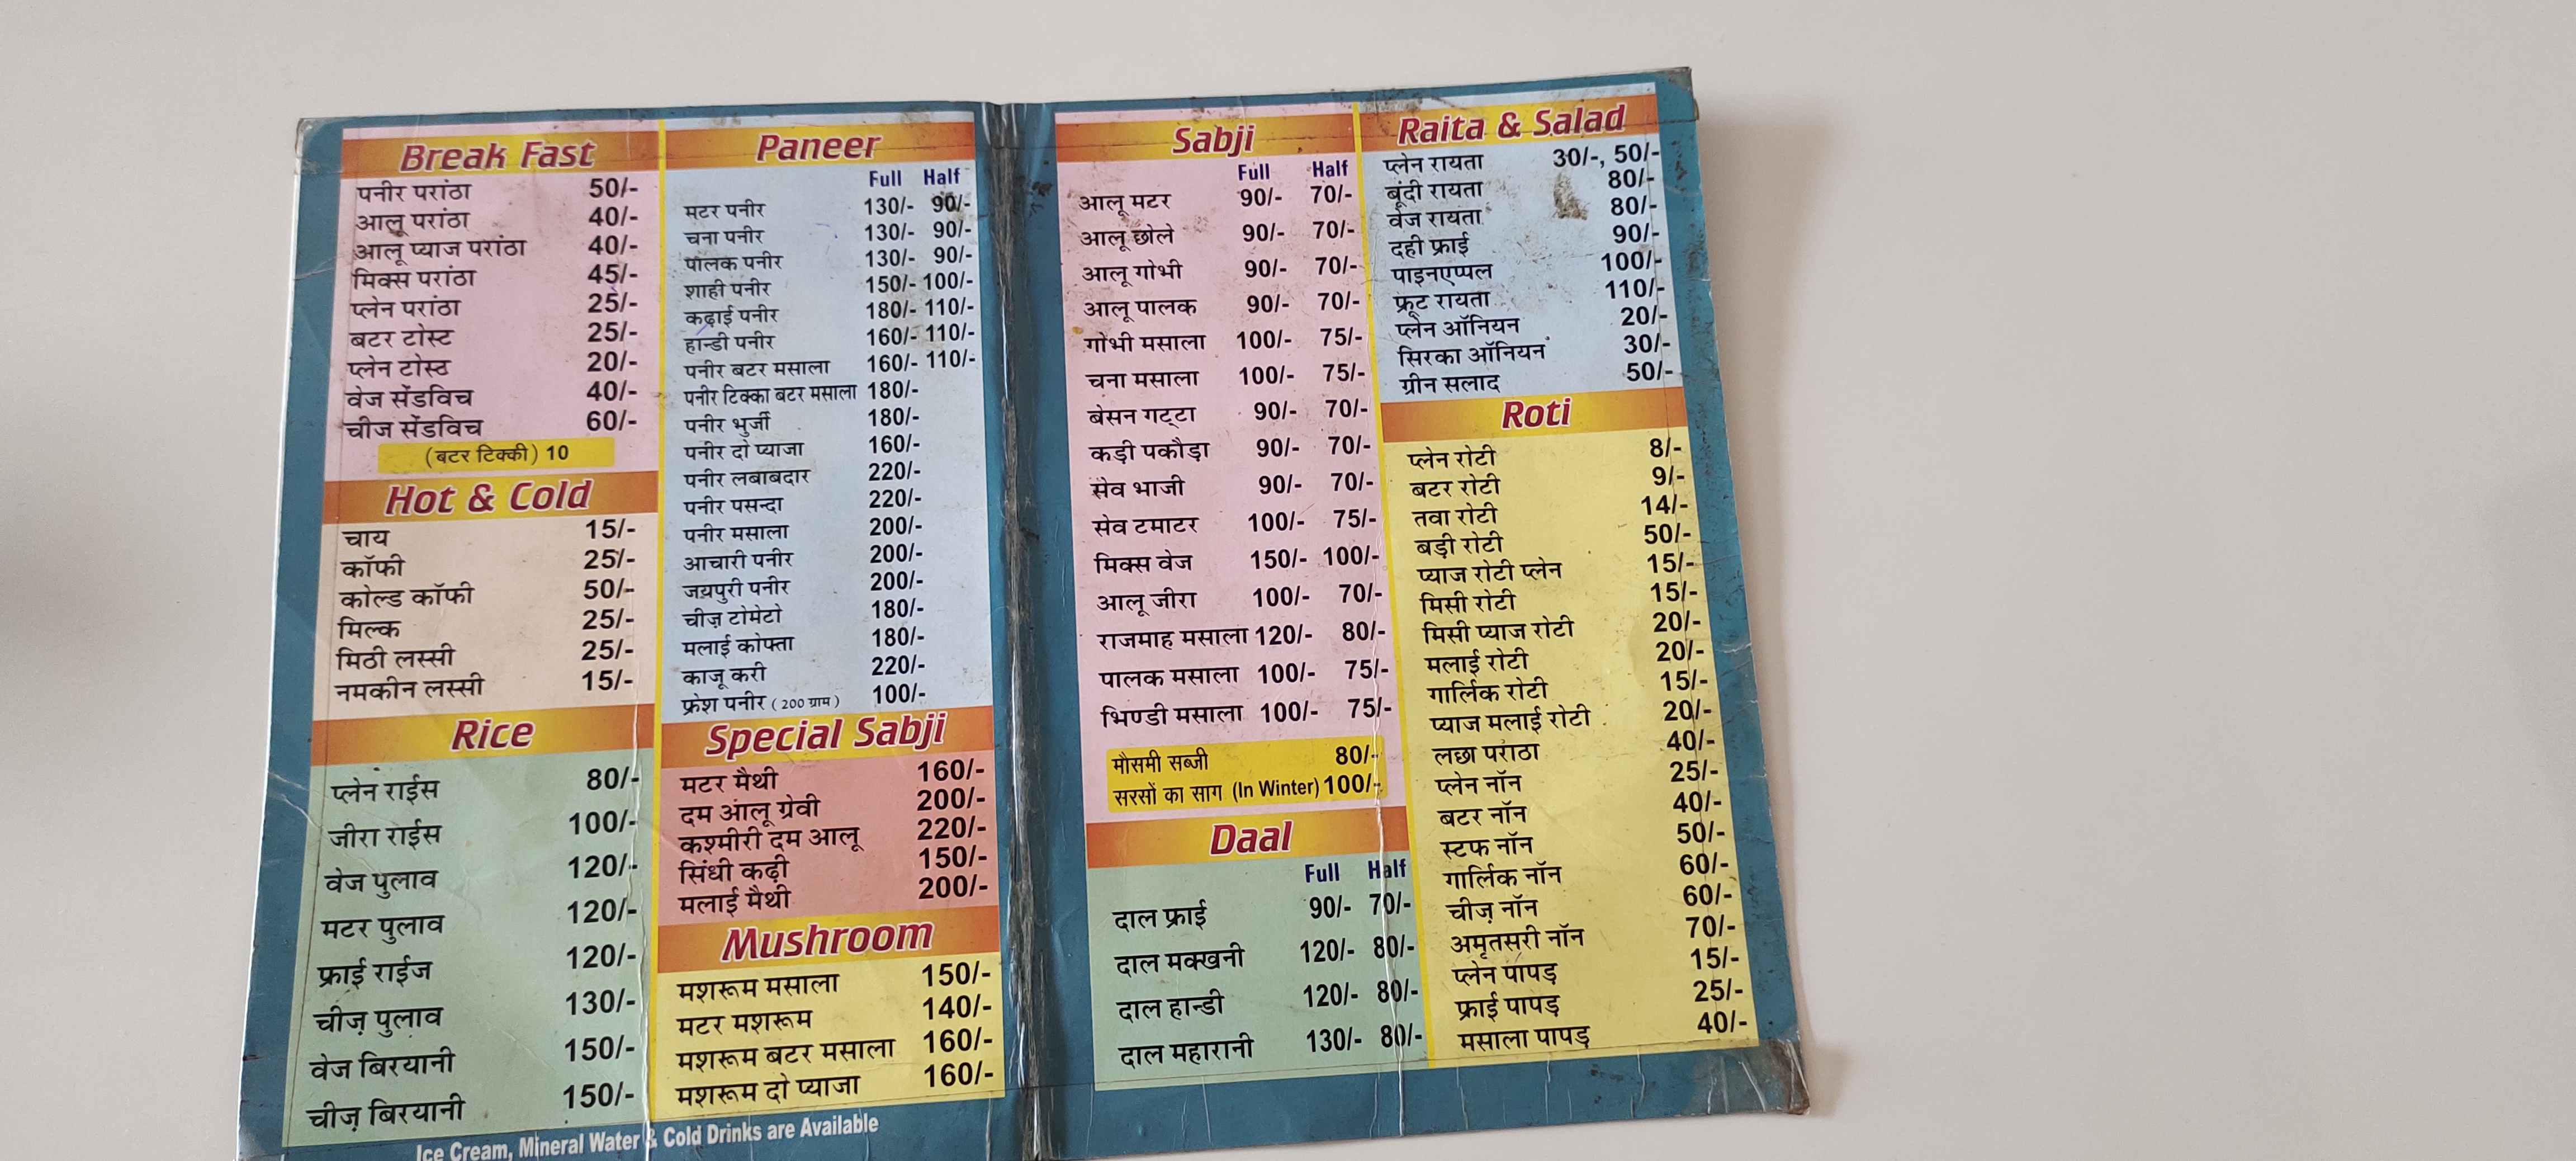 Break Fast
पनीर परांठा 50/-
आलू परांठा 40/-
आलू प्याज परांठा 40/-
मिक्स परांठा 45/-
प्लेन परांठा 25/-
बटर टोस्ट 25/-
प्लेन टोस्ठ 20/-
वेज सेंडविच 40/-
चीज सेंडविच 60/-
(बटर टिक्की) 10
Hot & Cold
चाय 15/-
कॉफी 25/-
कोल्ड कॉफी 50/-
मिल्क 25/-
मिठी लस्सी 25/-
नमकीन लस्सी 15/-
Rice
प्लेन राईस 80/-
जीरा राईस 100/-
वेज पुलाव 120/-
मटर पुलाव 120/-
फ्राई राईज 120/-
चीज़ पुलाव 130/-
वेज बिरयानी 150/-
चीज़ बिरयानी 150/-
Paneer
Full Half
मटर पनीर 130/- 90/-
चना पनीर 130/- 90/-
पालक पनीर 130/- 90/-
शाही पनीर 150/- 100/-
कढ़ाई पनीर 180/- 110/-
हान्डी पनीर 160/- 110/-
पनीर बटर मसाला 160/- 110/-
पनीर टिक्का बटर मसाला 180/-
पनीर भुर्जी 180/-
पनीर दो प्याजा 160/-
पनीर लबाबदार 220/-
पनीर पसन्दा 220/-
पनीर मसाला 200/-
आचारी पनीर 200/-
जयपुरी पनीर 200/-
चीज़ टोमेटो 180/-
मलाई कोफ्ता 180/-
काजू करी 220/-
फ्रेश पनीर ( 200 ग्राम ) 100/-
Special Sabji
मटर मैथी 160/-
दम आलू ग्रेवी 200/-
कश्मीरी दम आलू 220/-
सिंधी कढ़ी 150/-
मलाई मैथी 200/-
Mushroom
मशरूम मसाला 150/-
मटर मशरूम 140/-
मशरूम बटर मसाला 160/-
मशरूम दो प्याजा 160/-
Ice Cream, Mineral Water & Cold Drinks are Available
Sabji
Full Half
आलू मटर 90/- 70/-
आलू छोले 90/- 70/-
आलू गोभी 90/- 70/-
आलू पालक 90/- 70/-
गोभी मसाला 100/- 75/-
चना मसाला 100/- 75/-
बेसन गट्टा 90/- 70/-
कड़ी पकौड़ा 90/- 70/-
सेव भाजी 90/- 70/-
सेव टमाटर 100/- 75/-
मिक्स वेज 150/- 100/-
आलू जीरा 100/- 70/-
राजमाह मसाला 120/- 80/-
पालक मसाला 100/- 75/-
भिण्डी मसाला 100/- 75/-
मौसमी सब्जी 80/-
सरसों का साग (In Winter) 100/-
Daal
Full Half
दाल फ्राई 90/- 70/-
दाल मक्खनी 120/- 80/-
दाल हान्डी 120/- 80/-
दाल महारानी 130/- 80/-
Raita & Salad
प्लेन रायता 30/-, 50/-
बूंदी रायता 80/-
वेज रायता 80/-
दही फ्राई 90/-
पाइनएप्पल 100/-
फ्रूट रायता 110/-
प्लेन ऑनियन 20/-
सिरका ऑनियन 30/-
ग्रीन सलाद 50/-
Roti
प्लेन रोटी 8/-
बटर रोटी 9/-
तवा रोटी 14/-
बड़ी रोटी 50/-
प्याज रोटी प्लेन 15/-
मिसी रोटी 15/-
मिसी प्याज रोटी 20/-
मलाई रोटी 20/-
गार्लिक रोटी 15/-
प्याज मलाई रोटी 20/-
लछा पराठा 40/-
प्लेन नॉन 25/-
बटर नॉन 40/-
स्टफ नॉन 50/-
गार्लिक नॉन 60/-
चीज़ नॉन 60/-
अमृतसरी नॉन 70/-
प्लेन पापड़ 15/-
फ्राई पापड़ 25/-
मसाला पापड़ 40/-